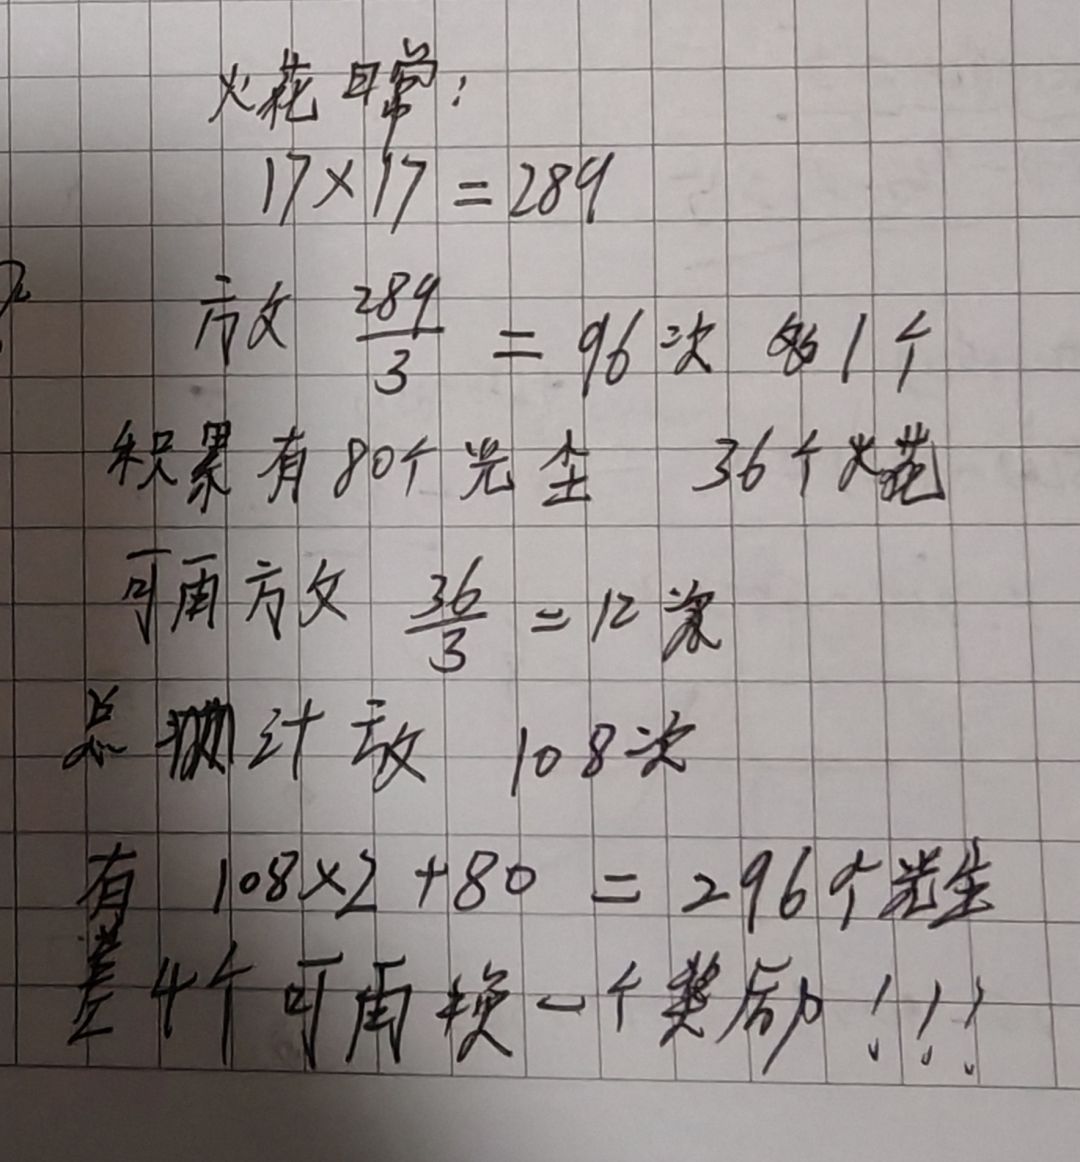 火花日常:
17×17=289
方攵 289/3 = 96次 多1个
积累有80个光尘 36个火花
可再方攵 36/3 =12次
总计放 108次
有 108×2+80 = 296个光尘
差4个可再换一个奖励!!!